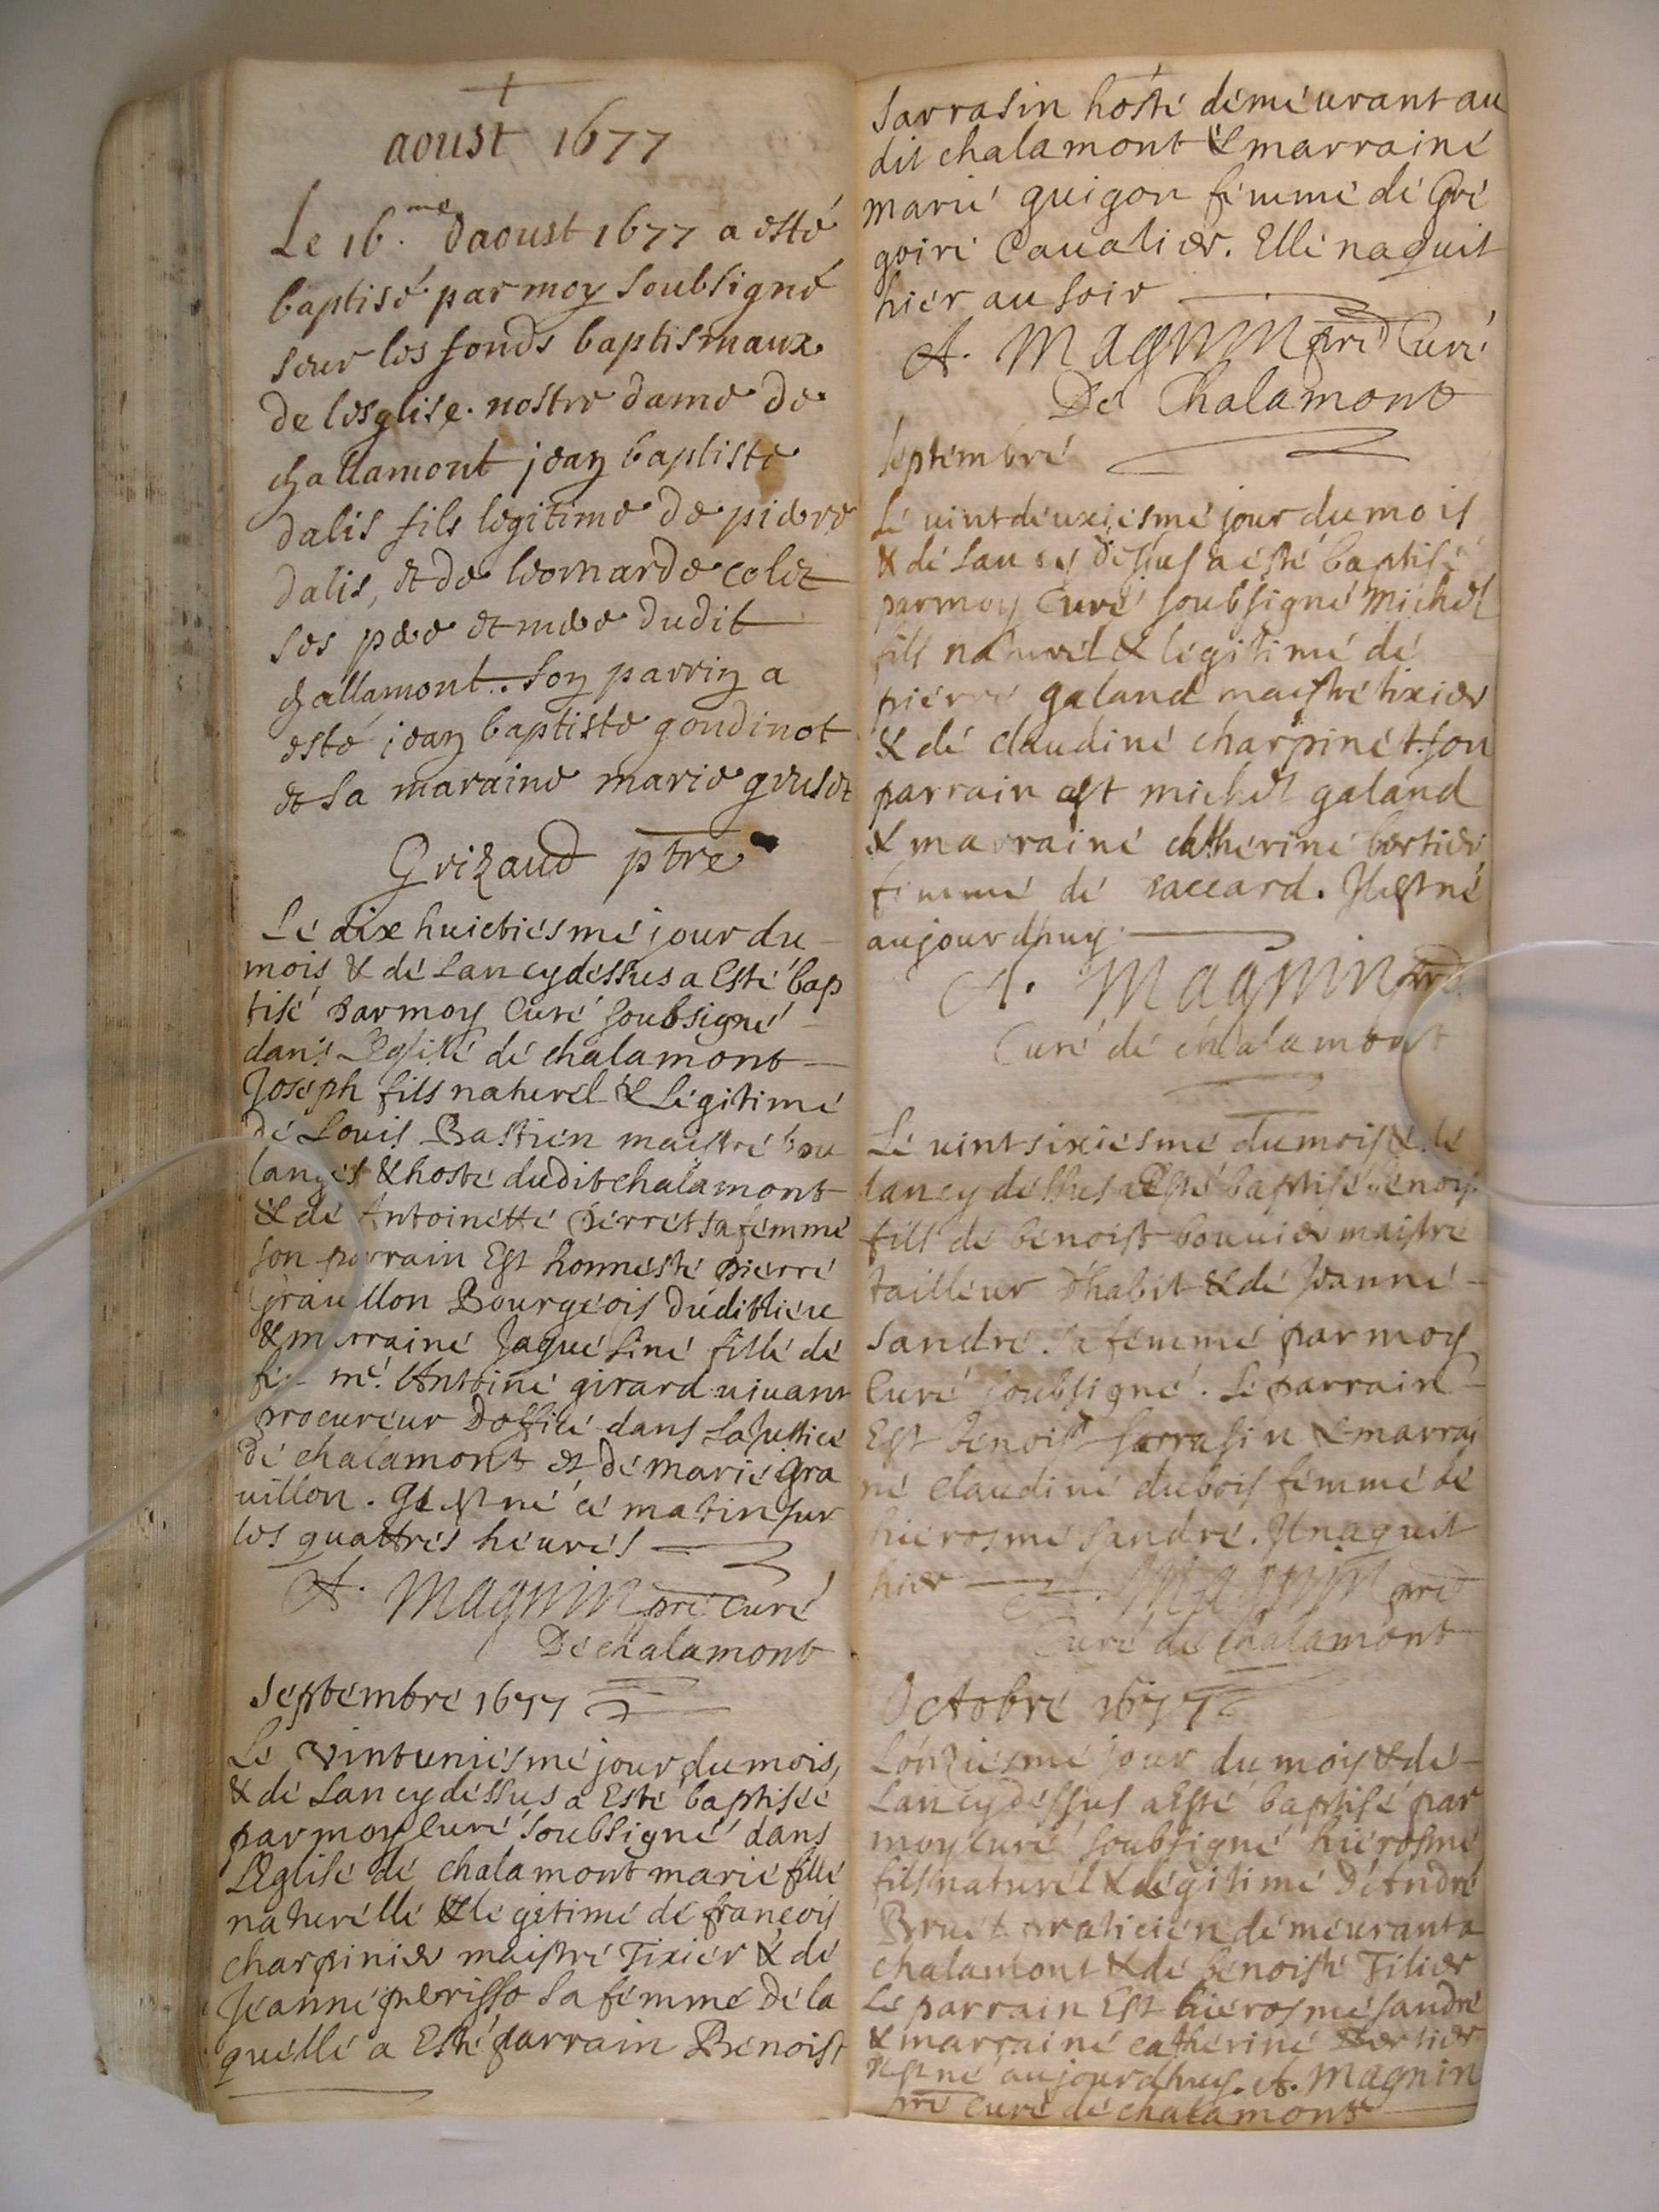 aoust 1677
Le 16.me daoust 1677 a esté
baptisé par moy soubsigné
seur les fonds baptismaux
de lesglise nostre dame de
challamont jean baptiste
dalis fils legitime de pierre
dalis, et de leonarde colet
ses pere et mere dudit
challamont.. son parrin a
esté jean baptiste goudinot
et sa maraine marie gruset
Grizaud ptre
Lé dixe huictiésmé jour du
mois & dé Lancydéssus a Esté bap
tisé par moy Curé soubsigné
dans LEglisé dé chalamont
Joséph fils naturél & Légitimé
dé Louis Bastién maistré bou
langér & hosté dudit chalamont
& dé Antoinétté Pérrét sa fémmé
son parrain Est honnésté piérré
Grauillon Bourgéois dudit liéu
& marrainé Jaquéliné fillé dé
feu mé. Antoiné girard uiuant
procuréur Doffice dans La Justicé
dé chalamont et dé marié Gra
uillon. Il est né cé matin sur
les quattrés héurés
A. Magnin pré Curé
Dé chalamont
Séptémbré 1677
Lé vintuniésmé jour du mois,
& dé Lancydéssus a Esté baptiséé
par moy Curé soubsigné dans
LEglisé dé chalamont marié fillé
naturéllé & légitimé dé françois
charpinier maistré Tixiér & dé
Jéanné perisso sa fémmé dé la
quéllé a Esté parrain Bénoist
sarrasin hosté démeurant au
dit chalamont & marrainé
marié guigon fémmé dé Gré
goiré Caualier. Ellé naquit
hiér au soir
A. Magnin pré Curé
Dé Chalamont
séptémbré
Lé uintdéuxiésmé jour du mois
& dé Lancy déssus a ésté baptisé
par moy Curé soubsigné Michel
fils naturél & légitimé dé
piérré galand maistré tixier
& dé claudiné charpinét. son
parrain est michel galand
& marrainé cathériné bertier
fémmé dé saccard. Il est né
aujourdhuy.
A. Magnin pré
Curé dé chalamont
Lé uintsixiésmé du mois & dé
lancy déssus a Esté baptisé bénoist
fils dé bénoist bouuier maistré
tailléur d'habit & dé Jeanné
sandré sa fémmé par moy
Curé soubsigné. Lé parrain
Est bénoist sarrasin & marrai
né claudiné dubois fémmé dé
hiérosmé sandré. Il naquit
hier A. Magnin pré
Curé dé chalamont
Octobré 1677
Lonziésmé jour du mois & dé
Lancydéssus a Esté baptisé par
moy Curé soubsigné hiérosmé
fils naturél & légitimé d'André
Bruét praticién démeurant a
chalamont & dé bénoisté Tilier
Lé parrain Est hiérosmé sandré
& marrainé cathériné Bertier
Il est né aujourdhuy. A. Magnin
pré Curé dé chalamont